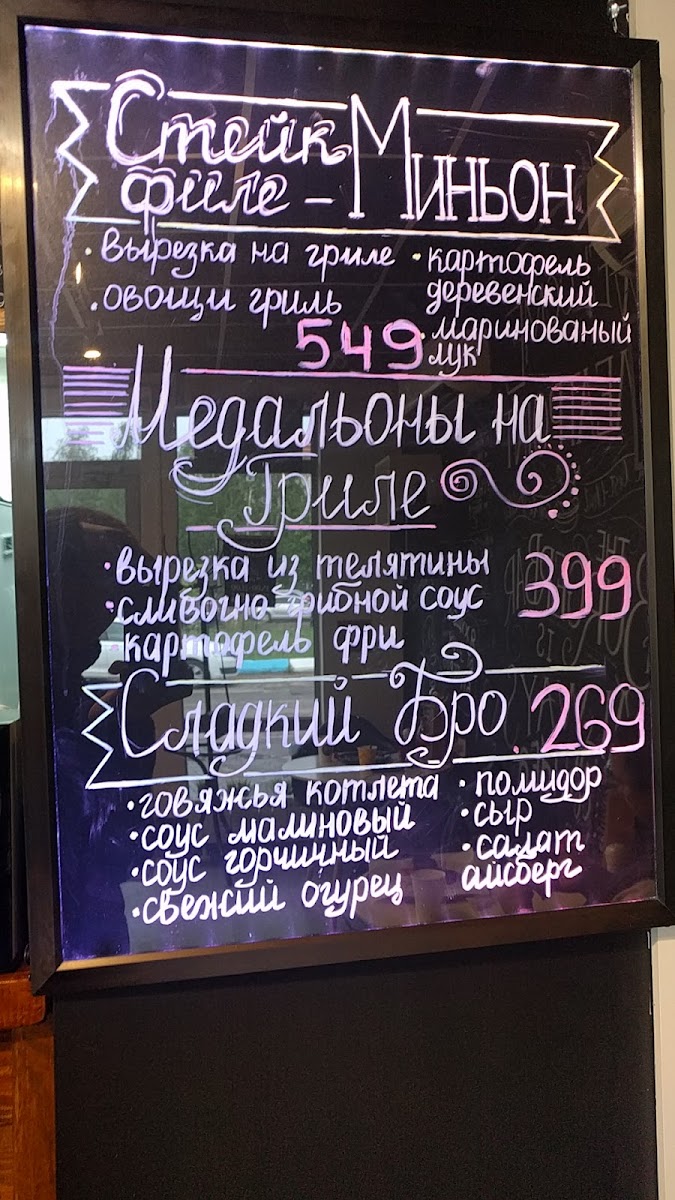 Стейк
филе - Миньон
· вырезка на гриле
· овощи гриль
· картофель
деревенский
· маринованый
лук
549
Медальоны на
Гриле
· вырезка из телятины
· сливочно грибной соус
· картофель фри
399
Сладкий Бро 269
· говяжья котлета
· соус малиновый
· соус горчичный
· свежий огурец
· помидор
· сыр
· салат
айсберг